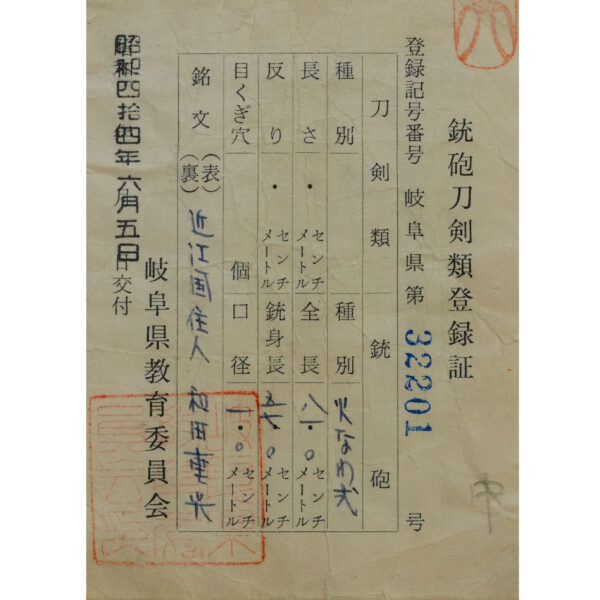 銃砲刀剣類登録証
登録記号番号 岐阜県第 32201 号
刀剣類 銃砲
種別 種別 火なわ式
長さ ・ センチメートル 全長 八一・〇 センチメートル
反り ・ センチメートル 銃身長 ・〇 センチメートル
目くぎ穴 個 口径 一・〇 センチメートル
銘文 (表) (裏) 近江国住人 和田重光
昭和四拾四年六月五日交付
岐阜県教育委員会
中